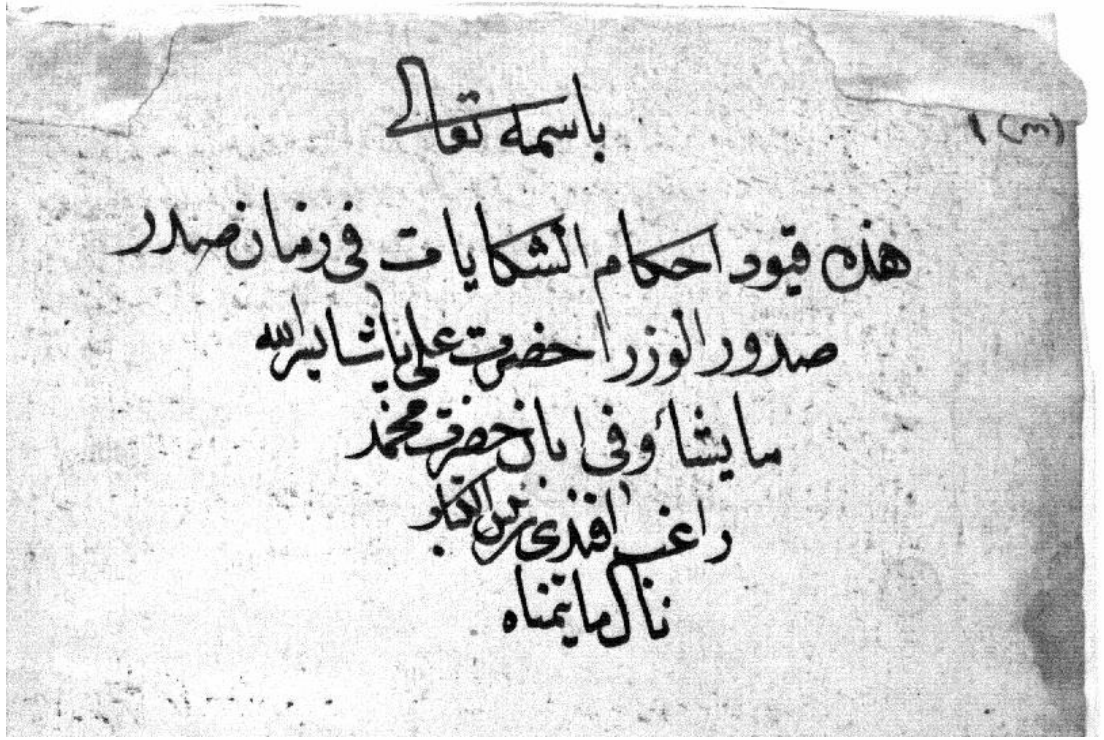 باسمه تعالى
١ (m)
هذه قيود احكام الشكايات فى زمان صدر
صدور الوزرا حضرت على پاشا يسر الله
ما يشاء وفى ابان حضرت محمد
راغب افندى رئيس الكتاب
نال ما يتمناه